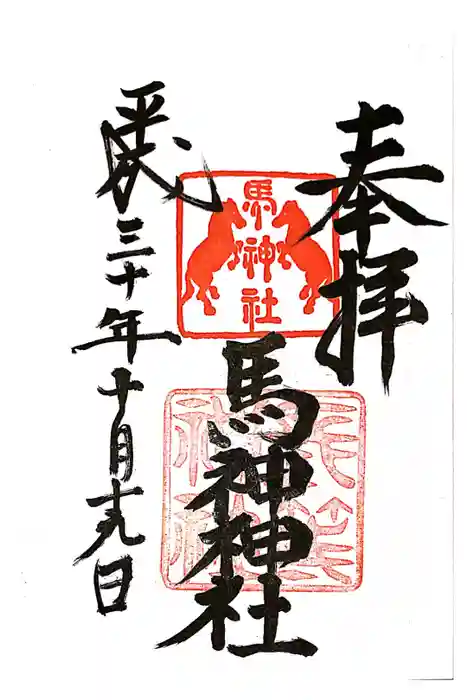 奉拝
馬神社
馬神神社
平成三十年十月十九日